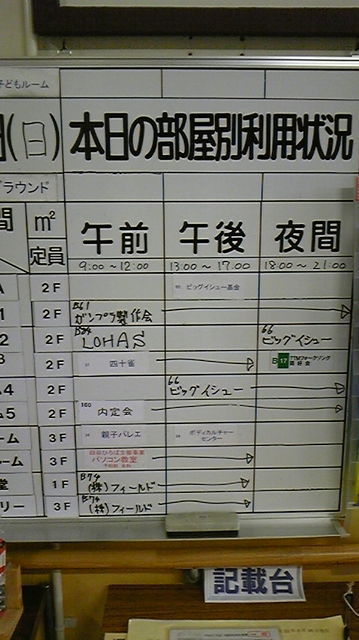 子どもルーム
(日) 本日の部屋別利用状況
グラウンド
間 m² 午前 午後 夜間
定員 9:00~12:00 13:00~17:00 18:00~21:00
A 2F ビッグイシュー基金
1 2F B61 ガンプラ製作会
2 2F LOHAS 66 ビッグイシュー
3 2F 四十雀 B 17 TTMフォークソング 愛好会
4 2F 66 ビッグイシュー
5 2F 160 内定会
ーム 3F 親子バレエ ボディカルチャー センター
ーム 3F パソコン教室
堂 1F B74 (株)フィールド
リー 3F B74 (株)フィールド
記載台